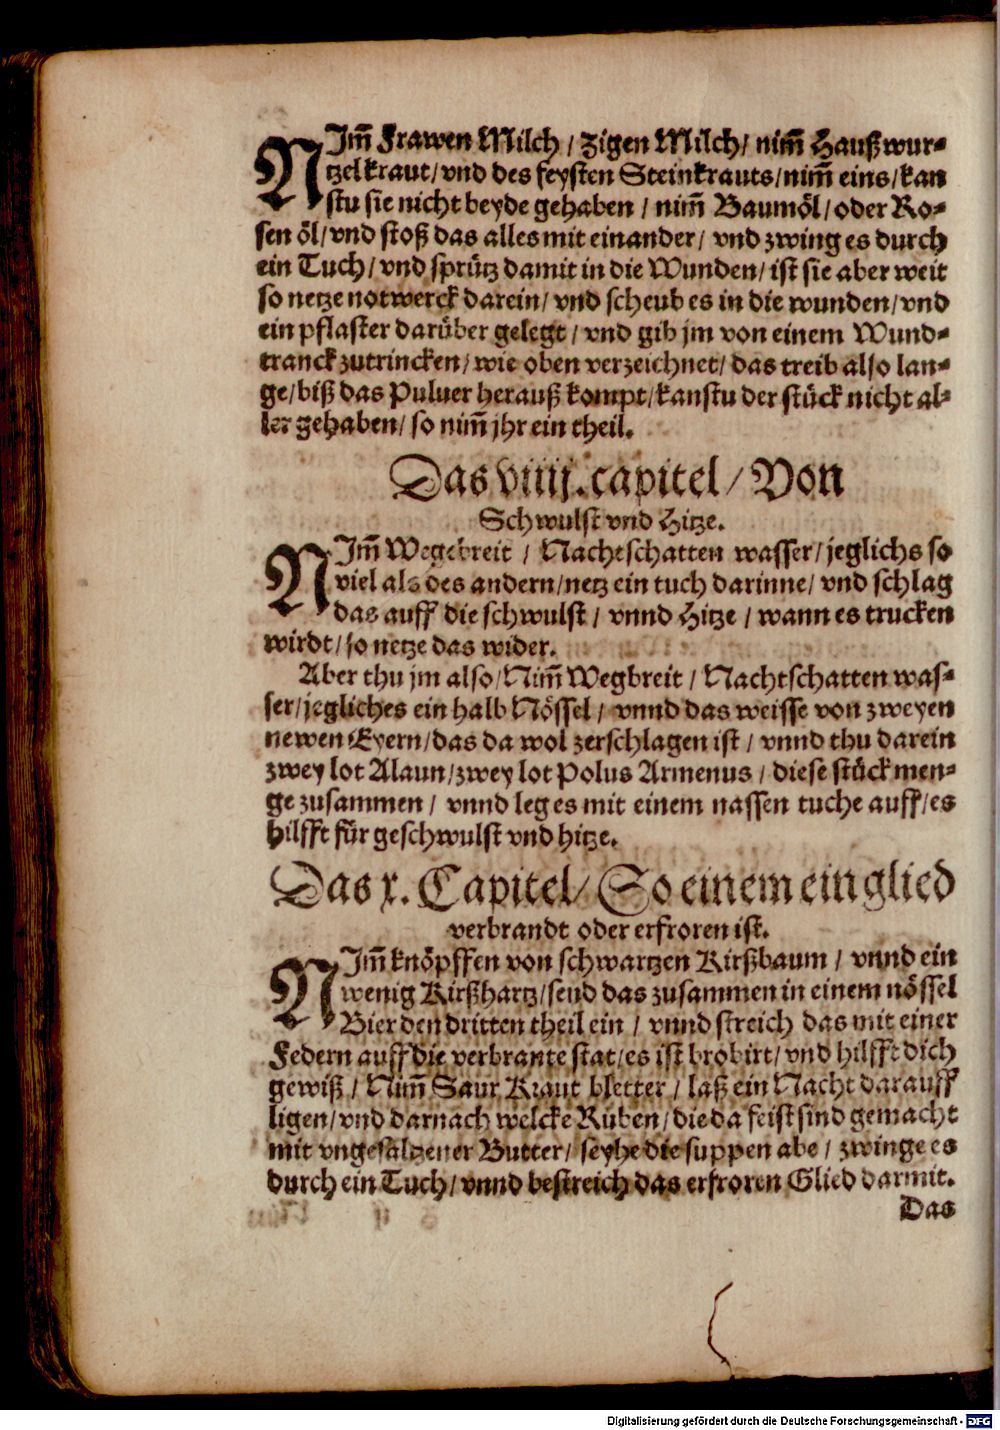 NIm̃ Frawen Milch / Zigen Milch / nim̃ Haußwur-
tzelkraut / vnd des feysten Steinkrauts / nim̃ eins / kan
stu sie nicht beyde gehaben / nim̃ Baumöl / oder Ro-
sen öl / vnd stoß das alles mit einander / vnd zwing es durch
ein Tuch / vnd sprütz damit in die Wunden / ist sie aber weit
so netze notwerck darein / vnd scheub es in die wunden / vnd
ein pflaster darüber gelegt / vnd gib jm von einem Wund-
tranck zutrincken / wie oben verzeichnet / das treib also lan-
ge / biß das Puluer herauß kompt / kanstu der stück nicht al-
ler gehaben / so nim̃ jhr ein theil.
Das viiij. capitel / Von
Schwulst vnd Hitze.
NIm̃ Wegebreit / Nachtschatten wasser / jeglichs so
viel als des andern / netz ein tuch darinne / vnd schlag
das auff die schwulst / vnnd Hitze / wann es trucken
wirdt / so netze das wider.
Aber thu jm also / Nim̃ Wegbreit / Nachtschatten was-
ser / jegliches ein halb Nössel / vnnd das weisse von zweyen
newen Eyern / das da wol zerschlagen ist / vnnd thu darein
zwey lot Alaun / zwey lot Polus Armenus / diese stück men-
ge zusammen / vnnd leg es mit einem nassen tuche auff / es
hilfft für geschwulst vnd hitze.
Das x. Capitel / So einem ein glied
verbrandt oder erfroren ist.
NIm̃ knöpffen von schwartzen Kirßbaum / vnnd ein
wenig Kirßhartz / seud das zusammen in einem nössel
Bier den dritten theil ein / vnnd streich das mit einer
Federn auff die verbrante stat / es ist brobirt / vnd hilfft dich
gewiß / Nim̃ Saur Kraut bletter / laß ein Nacht darauff
ligen / vnd darnach welcke Rüben / die da feist sind gemacht
mit vngesaltzener Butter / seyhe die suppen abe / zwinge es
durch ein Tuch / vnnd bestreich das erfroren Glied darmit.
Das
Digitalisierung gefördert durch die Deutsche Forschungsgemeinschaft - DFG